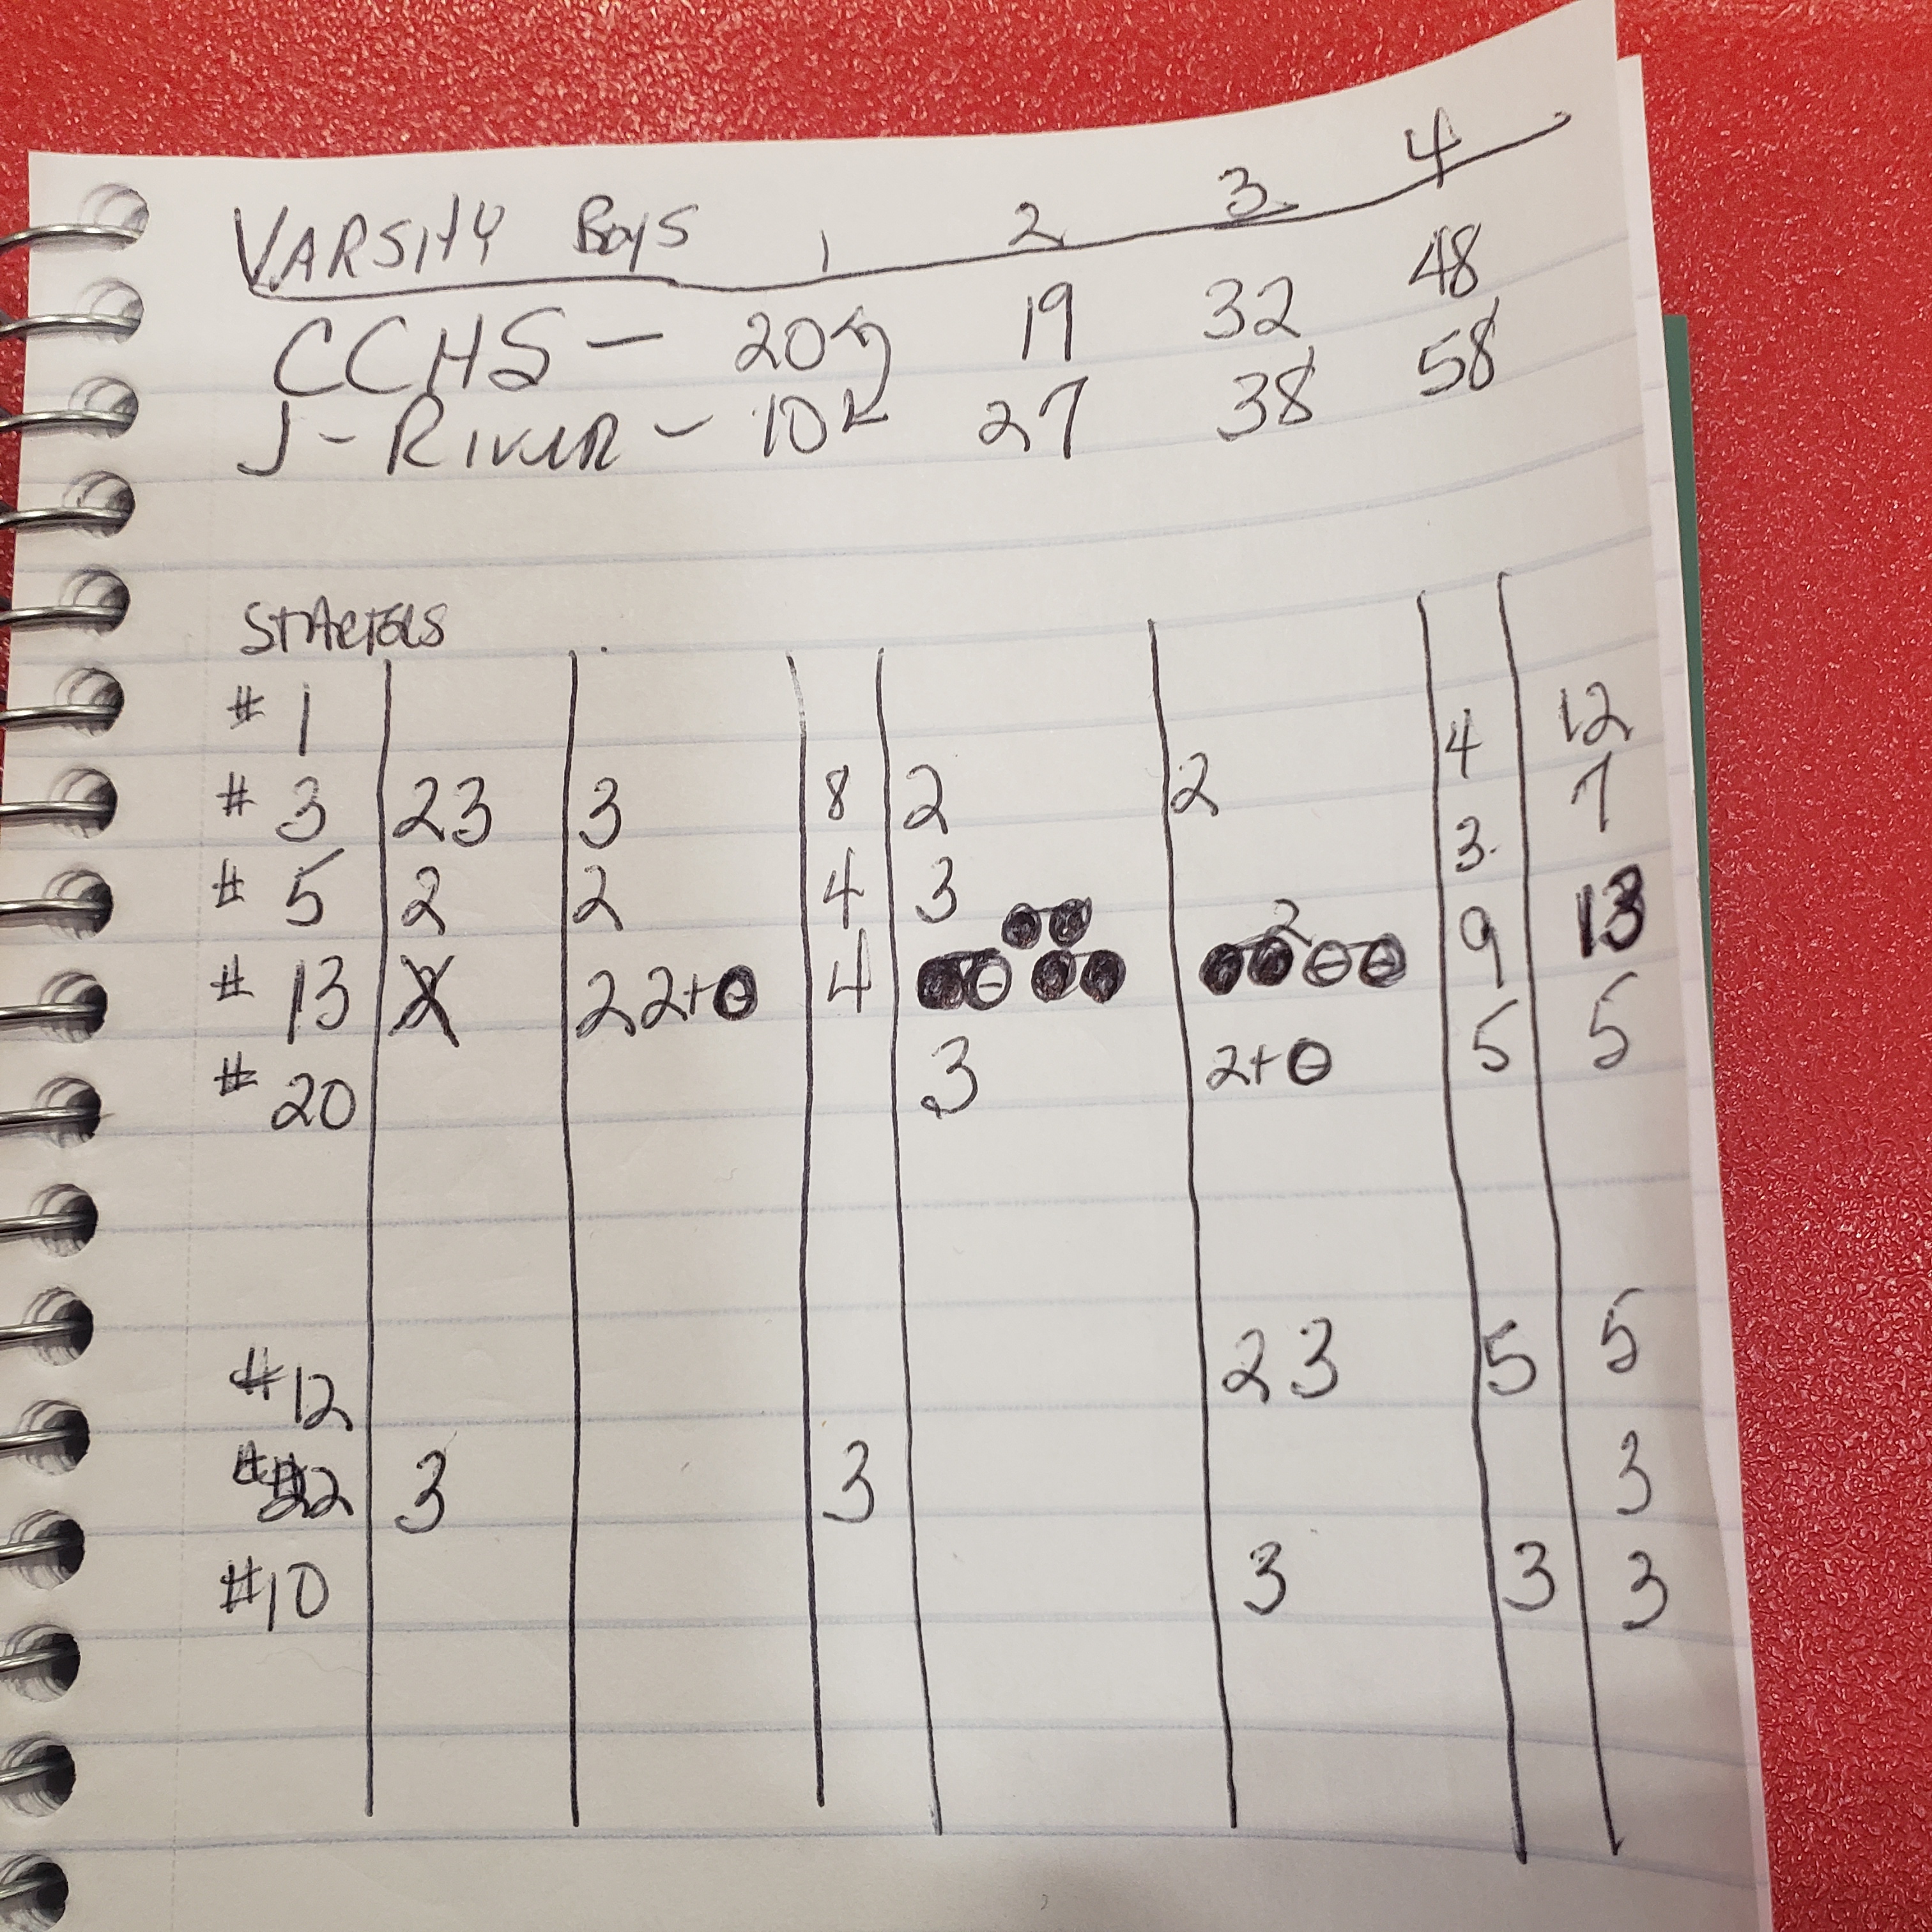 VARSITY BOYS 1 2 3 4
CCHS - 20 19 32 48
J-RIVER - 10 27 38 58
STARTERS
# 1
# 3 23 3 8 2 2 4 12
# 5 2 2 4 3 3 7
# 13 2 22+ 4 2 9 13
# 20 3 2+ 5 5
#12 23 5 5
#22 3 3 3
#10 3 3 3